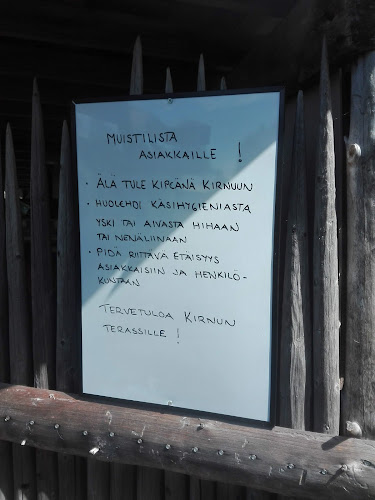 MUISTILISTA
ASIAKKAILLE !
• ÄLÄ TULE KIPEÄNÄ KIRNUUN
• HUOLEHDI KÄSIHYGIENIASTA
YSKI TAI AIVASTA HIHAAN
TAI NENÄLIINAAN
• PIDÄ RIITTÄVÄ ETÄISYYS
ASIAKKAISIIN JA HENKILÖ-
KUNTAAN
TERVETULOA KIRNUN
TERASSILLE !